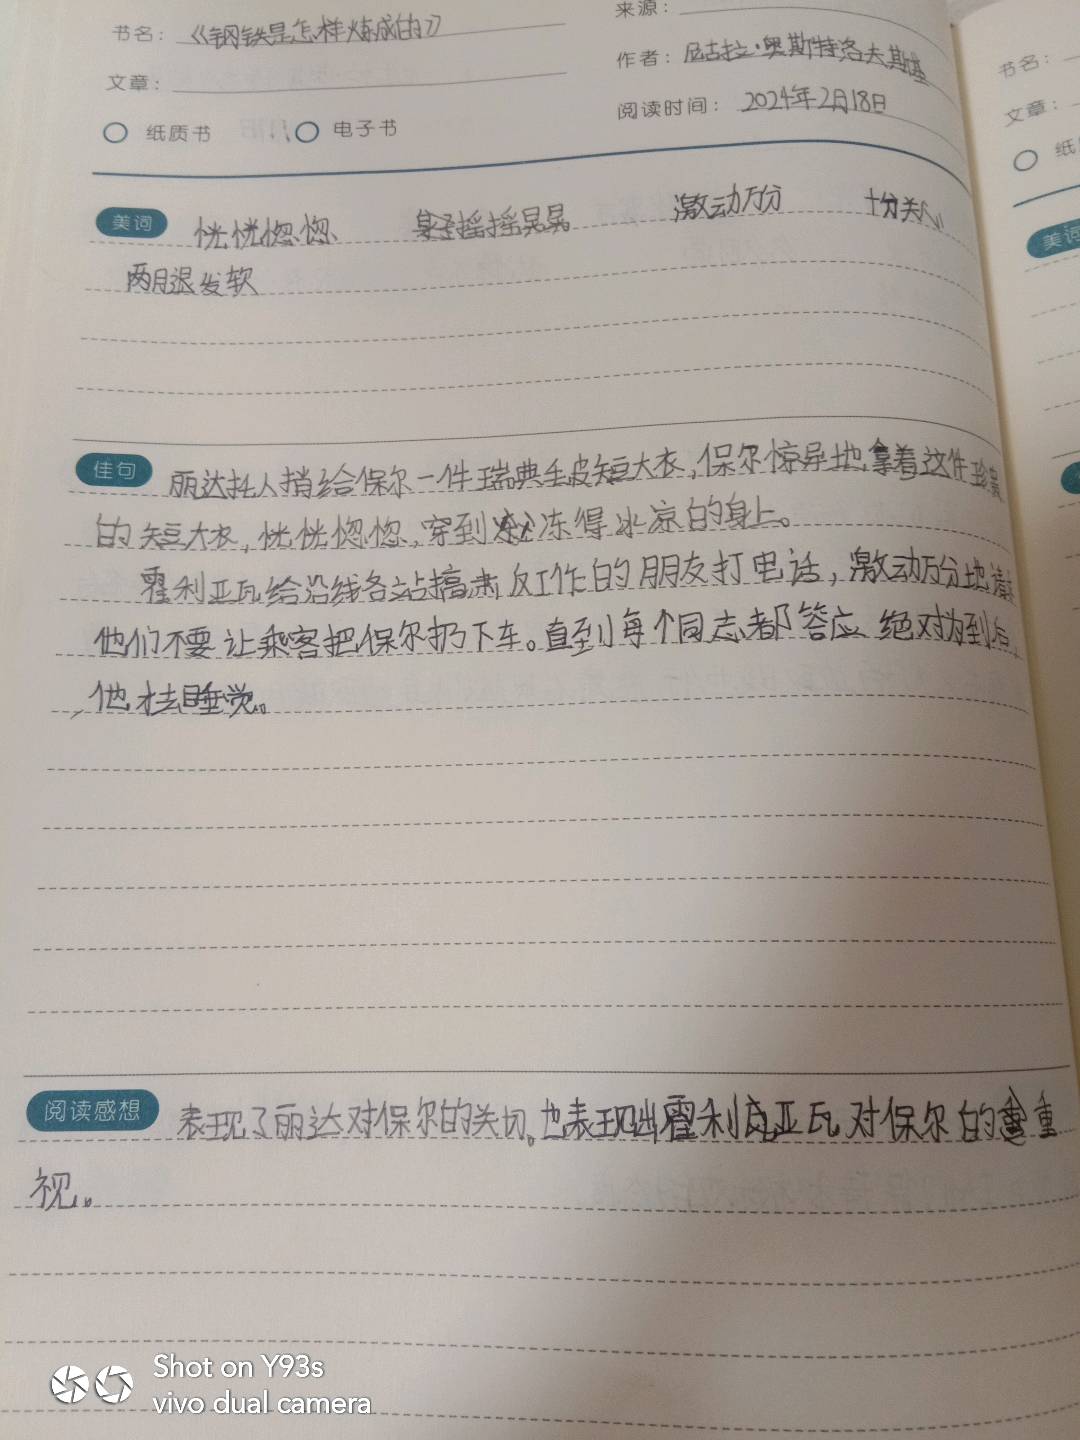 书名：《钢铁是怎样炼成的》
来源：
作者：尼古拉·奥斯特洛夫斯基
文章：
阅读时间：2024年2月18日
纸质书 电子书
美词 恍恍惚惚 身子摇摇晃晃 激动万分 十分关心
两腿发软
佳句 丽达托人捎给保尔一件瑞典毛皮短大衣,保尔惊异地拿着这件珍贵
的短大衣,恍恍惚惚,穿到冻得冰凉的身上。
霍利亚瓦给沿线各站搞肃反工作的朋友打电话,激动万分地请求
他们不要让乘客把保尔扔下车。直到每个同志都答应绝对办到后,
他才去睡觉。
阅读感想 表现了丽达对保尔的关切。也表现出霍利亚瓦对保尔的重
视。
书名：
文章：
纸
美词
Shot on Y93s
vivo dual camera